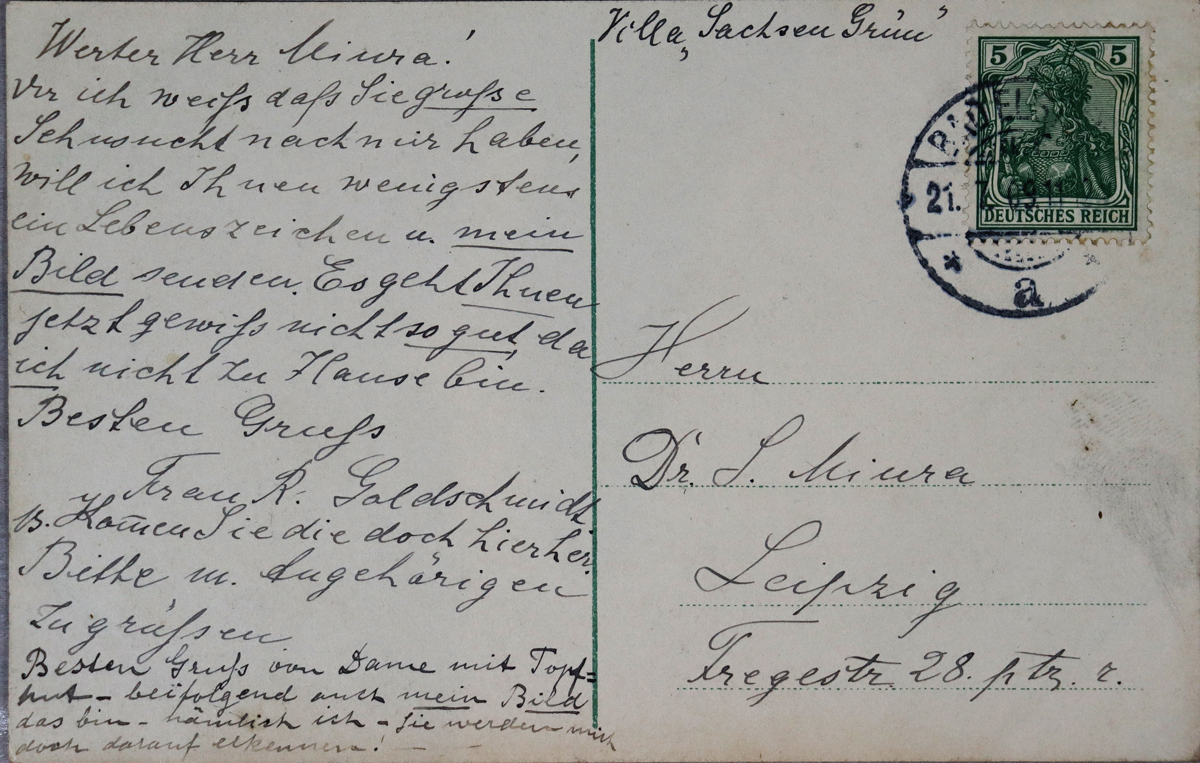 Villa „Sachsen Grün"
Werter Herr Miura!
ich weiß daß Sie große
Sehnsucht nach mir haben,
will ich Ihnen wenigstens
ein Lebenszeichen u. mein
Bild senden. Es geht Ihnen
jetzt gewiß nicht so gut, da
ich nicht zu Hause bin.
Besten Gruß
Frau R. Goldschmidt
Kom̄en Sie die doch hierher.
Bitte m. Angehörigen
zu grüßen
Besten Gruß von Dame mit Topf=
hut – beifolgend auch mein Bild
das bin – nämlich ich – Sie werden mich
doch darauf erkennen! – –
5 5
DEUTSCHES REICH
21. 7. 09. 11
a
Herrn
Dr. S. Miura
Leipzig
Fregestr. 28. ptr. r.